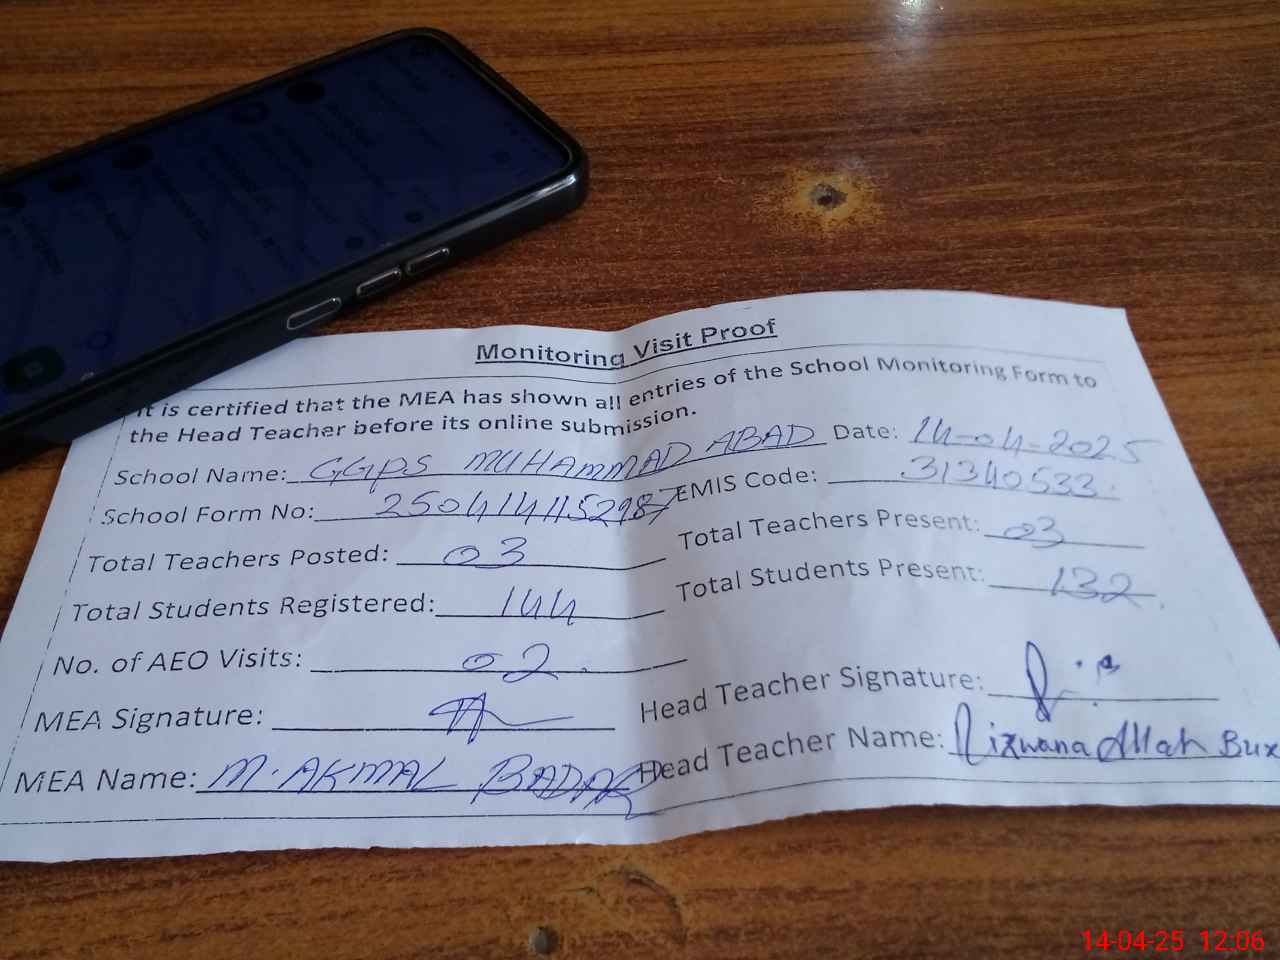 Monitoring Visit Proof
It is certified that the MEA has shown all entries of the School Monitoring Form to
the Head Teacher before its online submission.
School Name: GGPS MUHAMMAD ABAD Date: 14-04-2025
School Form No: 2504141152987 EMIS Code: 31340533
Total Teachers Posted: 03 Total Teachers Present: 03
Total Students Registered: 144 Total Students Present: 132
No. of AEO Visits: 02
MEA Signature: Head Teacher Signature:
MEA Name: M. AKMAL Head Teacher Name: Rizwana Allah Bux
14-04-25 12:06